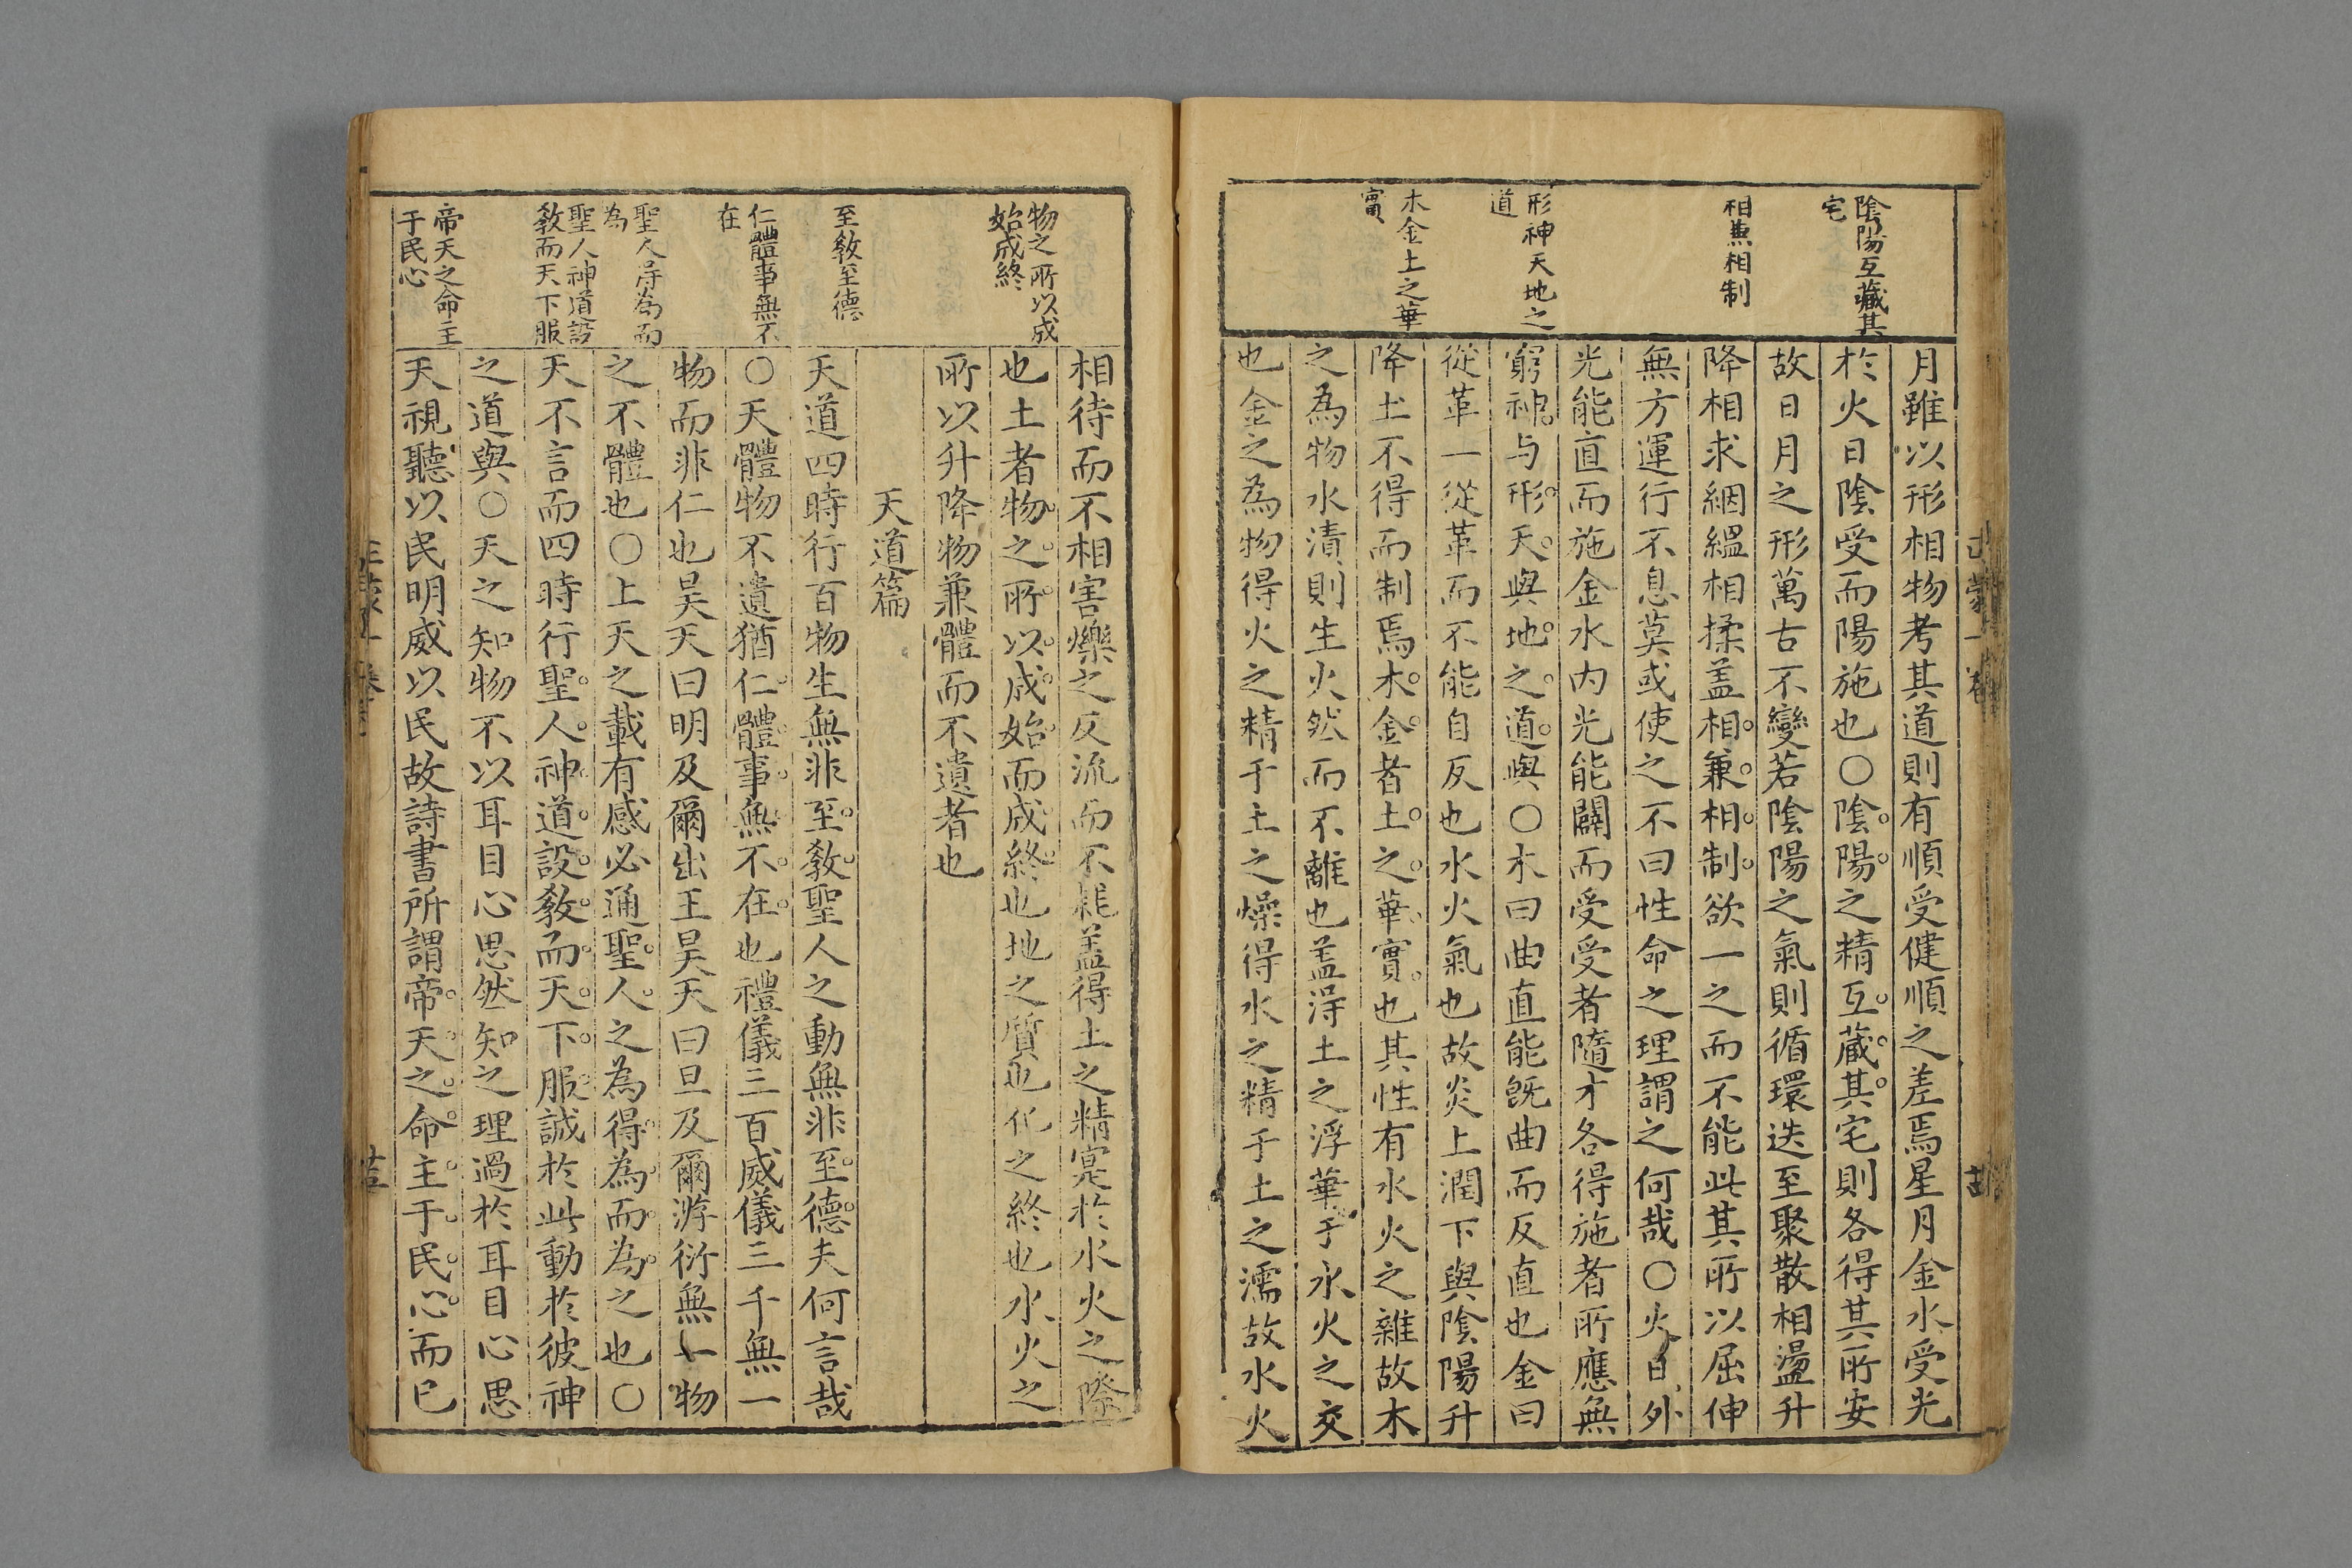 陰陽互藏其
宅
相兼相制
形神天地之
道
木金土之華
實
月雖以形相物考其道則有順受健順之差焉星月金水受光
於火日陰受而陽施也〇陰陽之精互藏其宅則各得其所安
故日月之形萬古不變若陰陽之氣則循環迭至聚散相盪升
降相求絪縕相揉盖相兼相制欲一之而不能此其所以屈伸
無方運行不息莫或使之不曰性命之理謂之何哉〇火日外
光能直而施金水内光能闢而受受者隨才各得施者所應無
窮神与形天與地之道與〇木曰曲直能旣曲而反直也金曰
從革一從革而不能自反也水火氣也故炎上潤下與陰陽升
降土不得而制焉木金者土之華實也其性有水火之雜故木
之為物水漬則生火然而不離也盖得土之浮華于水火之交
也金之為物得火之精于土之燥得水之精于土之濡故水火
物之所以成
始成終
至教至德
仁體事無不
在
聖人得為而
為
聖人神道設
教而天下服
帝天之命主
于民心
相待而不相害爍之反流而不耗盖得土之精寔於水火之際
也土者物之所以成始而成終也地之質也化之終也水火之
所以升降物兼體而不遺者也
天道篇
天道四時行百物生無非至教聖人之動無非至德夫何言哉
〇天體物不遺猶仁體事無不在也禮儀三百威儀三千無一
物而非仁也昊天曰明及爾出王昊天曰旦及爾游衍無一物
之不體也〇上天之載有感必通聖人之為得為而為之也〇
天不言而四時行聖人神道設教而天下服誠於此動於彼神
之道與〇天之知物不以耳目心思然知之理過於耳目心思
天視聽以民明威以民故詩書所謂帝天之命主于民心而已